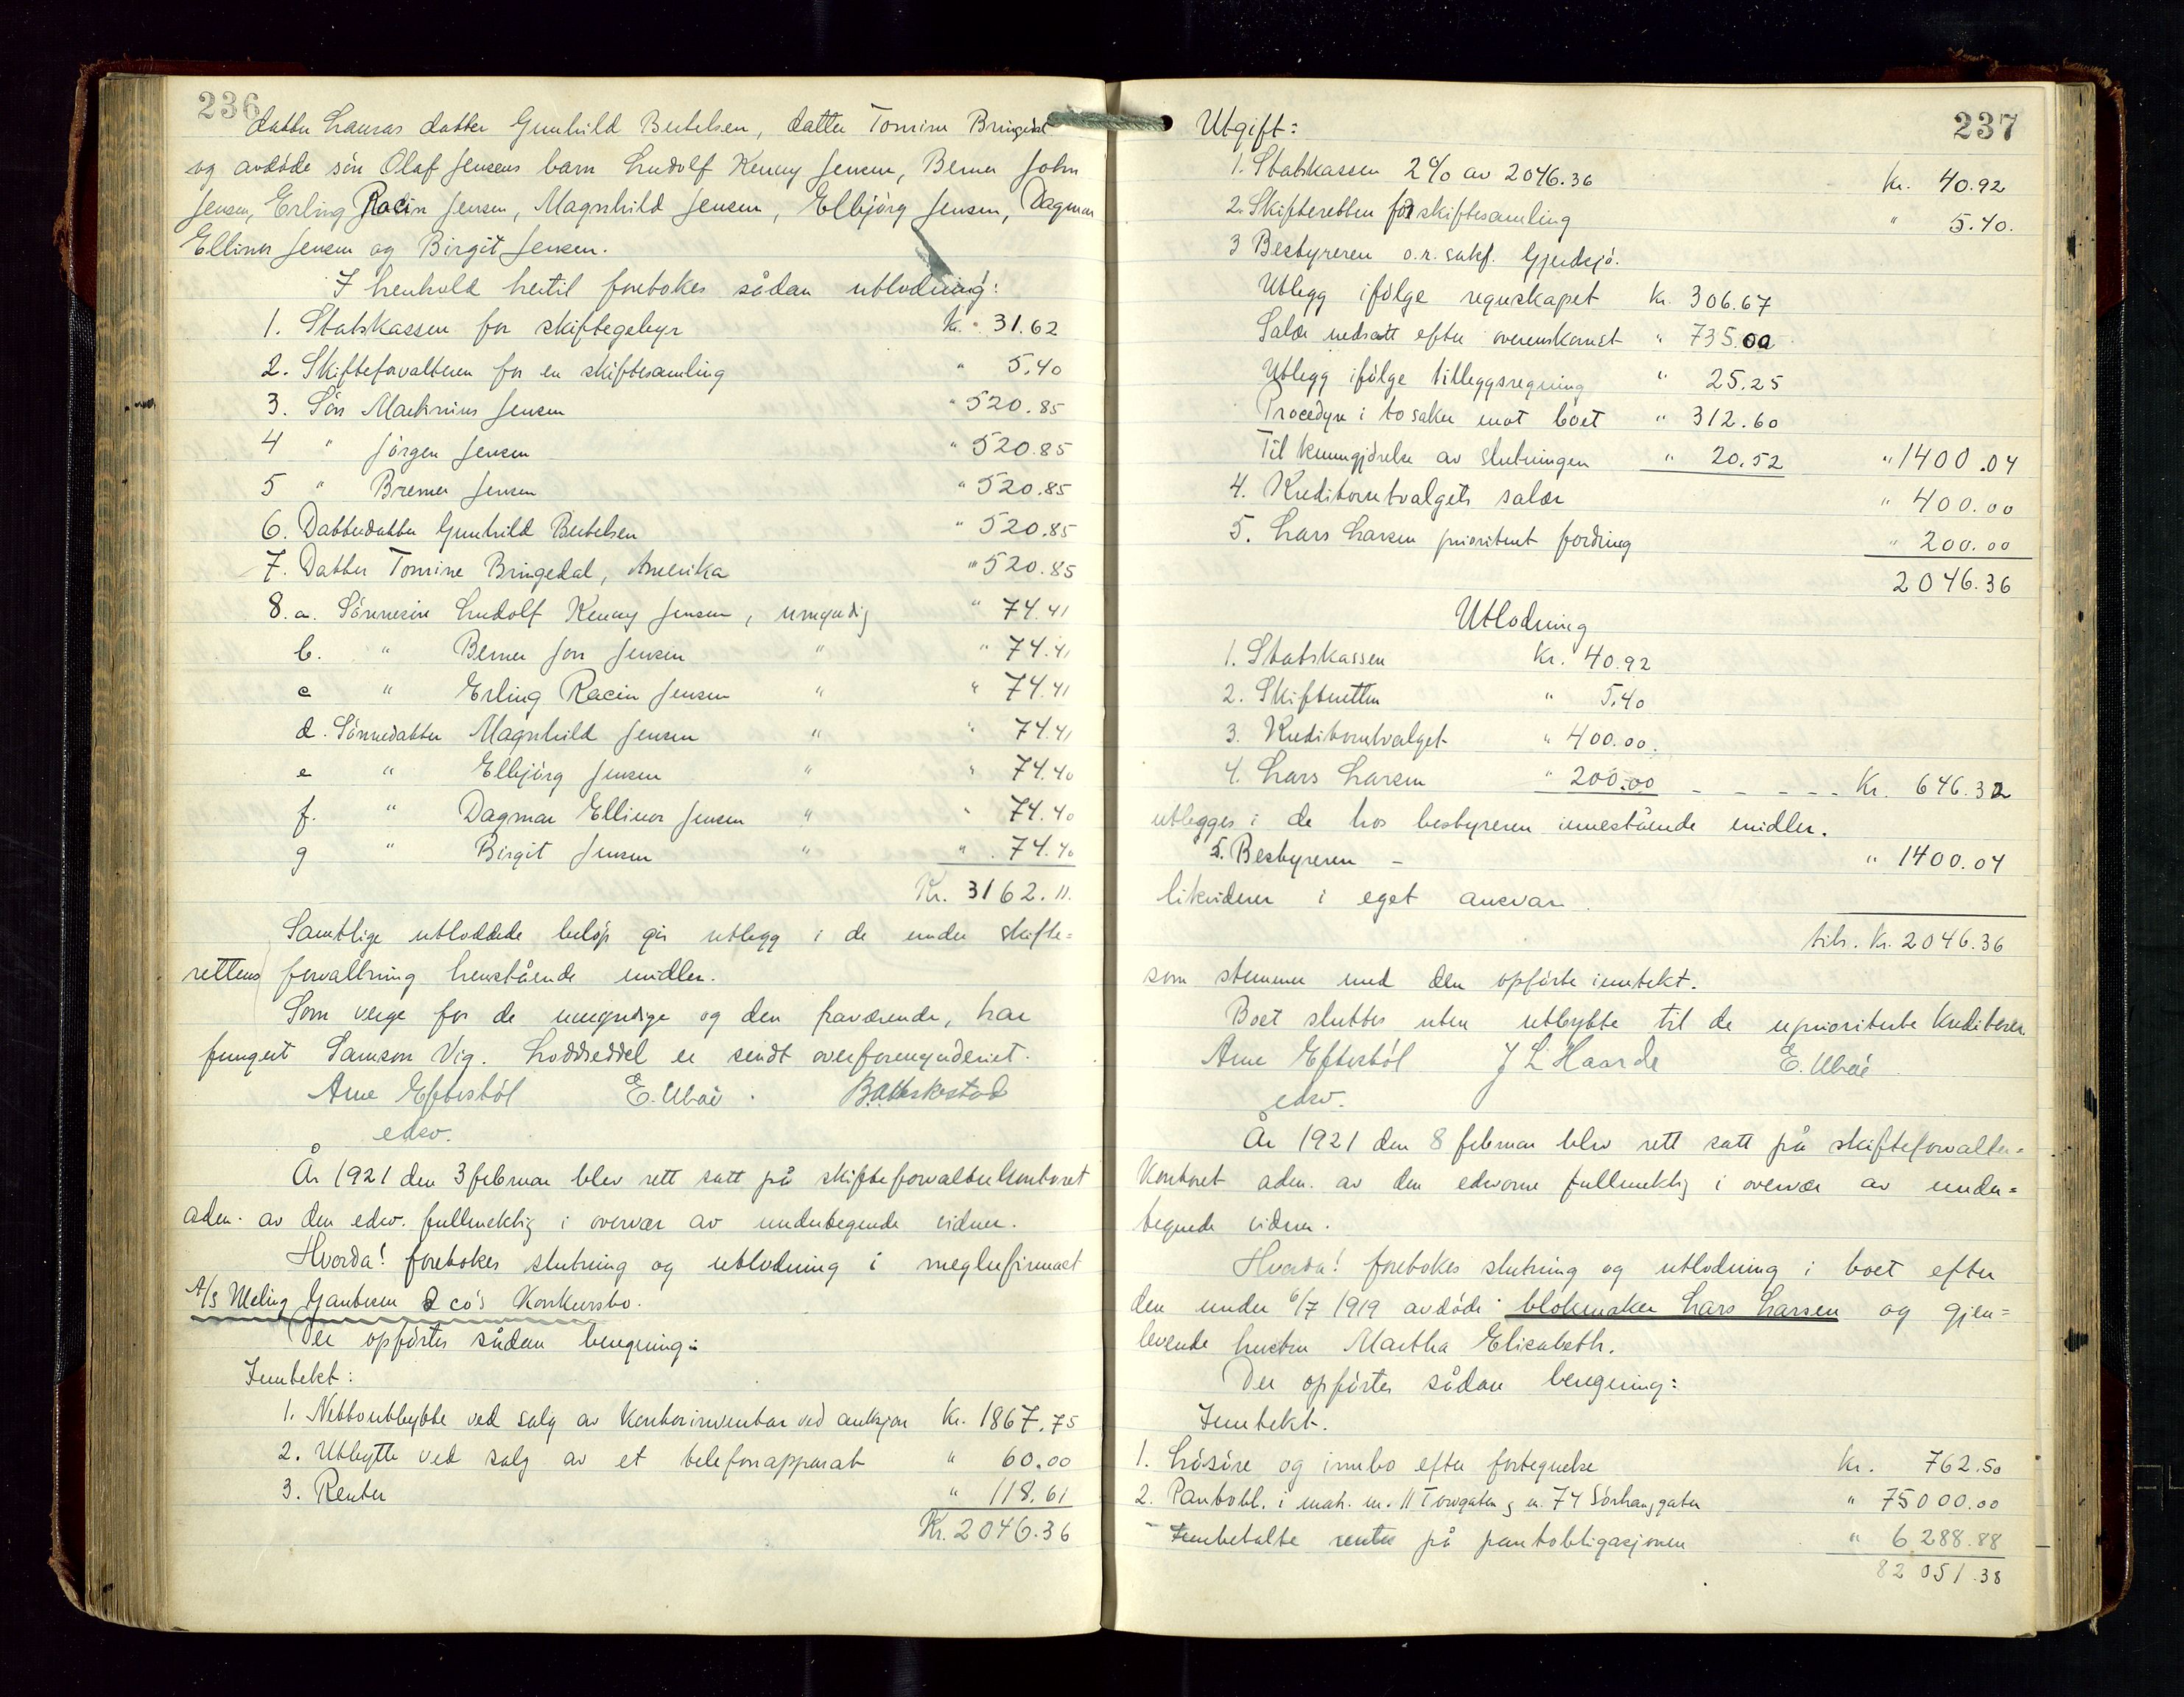 236
datter Lauras datter Gunhild Bertelsen, datter Tomine Bringedal
og avdöde sön Olaf Jensens barn Ludolf Kenny Jensen, Berner John
Jensen, Erling Racin Jensen, Magnhild Jensen, Elbjörg Jensen, Dagmar
Ellinor Jensen og Birgit Jensen.
I henhold hertil foretokes sådan utlodning:
1. Statskassen for skiftegebyr Kr. 31.62
2. Skifteforvalteren for en skiftesamling " 5.40
3. Sön Martinius Jensen " 520.85
4 " Jörgen Jensen " 520.85
5 " Bremer Jensen " 520.85
6. Datterdatter Gunhild Bertelsen " 520.85
7. Datter Tomine Bringedal, Amerika " 520.85
8.a. Sönnesön Ludolf Kenny Jensen, umyndig " 74.41
b. " Berner Jon Jensen " " 74.41
c " Erling Racin Jensen " " 74.41
d. Sönnedatter Magnhild Jensen " " 74.41
e " Elbjörg Jensen " " 74.40
f. " Dagmar Ellinor Jensen " " 74.40
g " Birgit Jensen " " 74.40
Kr. 3162.11.
Samtlige utloddede belöp gis utlegg i de under skifte=
rettens forvaltning henstående midler.
Som verge for de umyndige og den fraværende, har
fungert Samson Vig. Loddseddel er sendt overformynderiet.
Arne Eftestöl E. Ubøe
edsv.
År 1921 den 3 februar blev rett satt på skifteforvalterkontoret
adm. av den edsv. fullmektig i overvær av undertegnede vidner.
Hvorda! foretokes slutning og utlodning i meglerfirmaet
A/S Meling Gautesen & co's Konkursbo.
Der opförtes sådan beregning:
Inntekt:
1. Nettoutbytte ved salg av kontorinventar ved auksjon Kr. 1867.75
2. Utbytte ved salg av et telefonapparat " 60.00
3. Renter " 118.61
Kr. 2046.36
237
Utgift:
1. Statskassen 2% av 2046.36 Kr. 40.92
2. Skifteretten for skiftesamling " 5.40.
3 Bestyreren o.r. sakf. Gjedsjö.
Utlegg ifölge regnskapet Kr. 306.67
Salær nedsatt efter overenskomst " 735.00
Utlegg ifölge tilleggsregning " 25.25
Procedyre i to saker mot boet " 312.60
Til kunngjörelse av slutningen " 20.52 " 1400.04
4. Kreditorutvalgets salær " 400.00
5. Lars Larsen prioritert fordring " 200.00
2046.36
Utlodning
1. Statskassen Kr. 40.92
2. Skifteretten " 5.40
3. Kreditorutvalget " 400.00.
4. Lars Larsen " 200.00 - - - - - Kr. 646.32
utlegges i de hos bestyreren innestående midler.
5. Bestyreren - " 1400.04
likviderer i eget ansvar.
tils. Kr. 2046.36
som stemmer med den opförte inntekt.
Boet sluttes uten utbytte til de uprioriterte kreditorer
Arne Eftestöl J L Haarde E. Ubøe
edsv.
År 1921 den 8 februar blev rett satt på skifteforvalter=
kontoret adm. av den edsvorne fullmektig i overvær av under=
tegnede vidner.
Hvorda! foretokes slutning og utlodning i boet efter
den under 6/7 1919 avdöde blokmaker Lars Larsen og gjen=
levende hustru Martha Elisabeth.
Der opförtes sådan beregning:
Inntekt.
1. Lösöre og innbo efter fortegnelse Kr. 762.50
2. Pantobl. i matr. nr. 11 Torvgaten og nr. 74 Sörhauggaten " 75000.00
- Innbetalte renter på pantobligasjonen " 6288.88
82 051.38